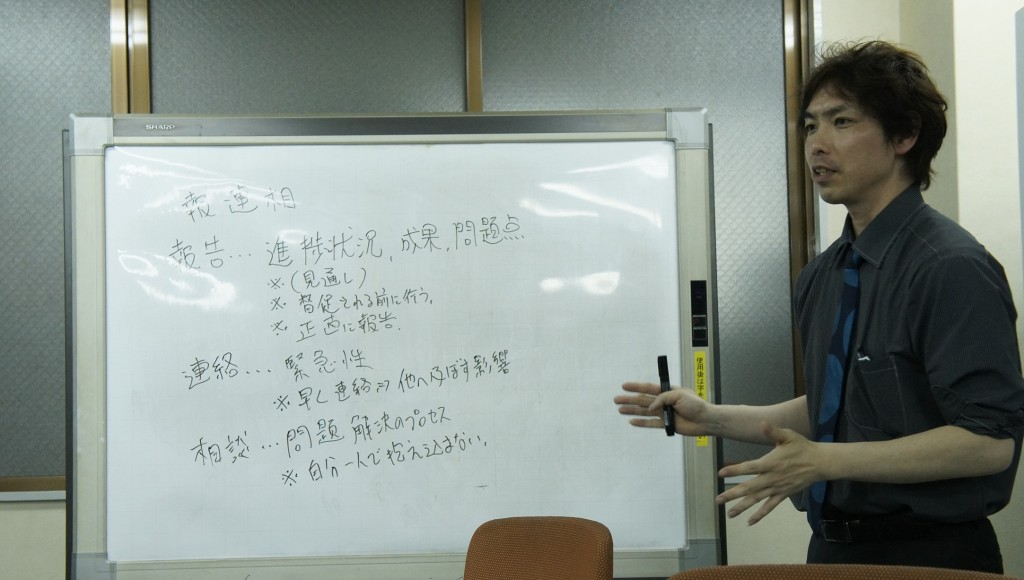 SHARP
報連相
報告… 進捗状況、成果、問題点
※(見通し)
※ 督促される前に行う。
※ 正直に報告.
連絡… 緊急性
※早く連絡⇒他へ及ぼす影響
相談… 問題解決のプロセス
※ 自分一人で抱え込まない。
使用後は